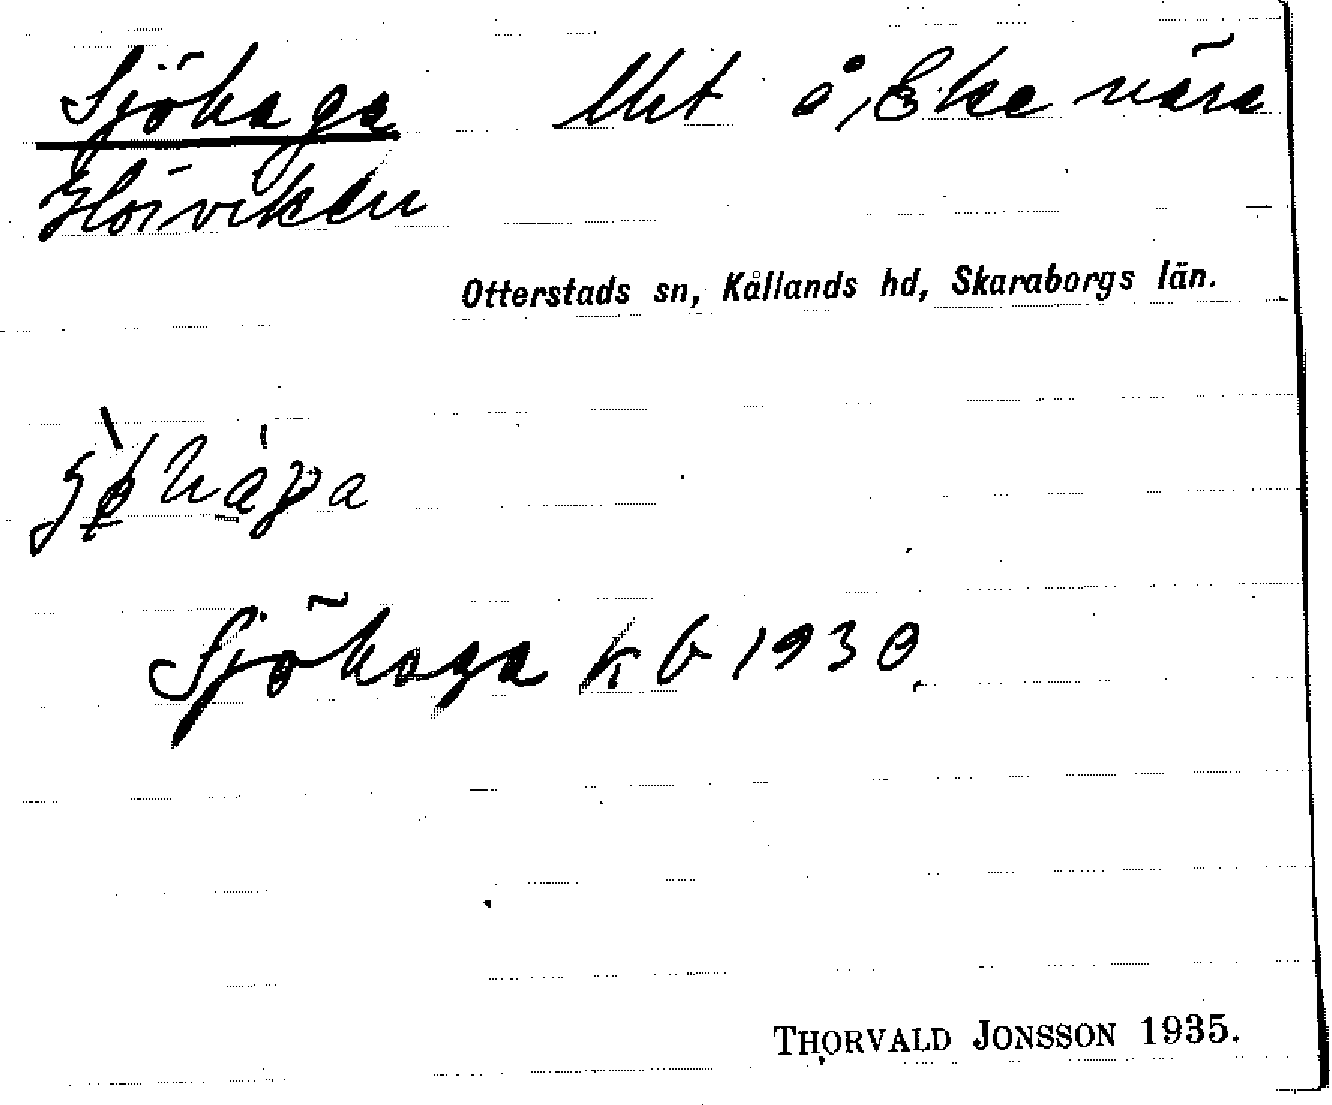 Sjöhaga Utst å Eke nära
Hörviken
Otterstads sn, Kållands hd, Skaraborgs län.
Sjöhaga kb 1930
THORVALD JONSSON 1935.